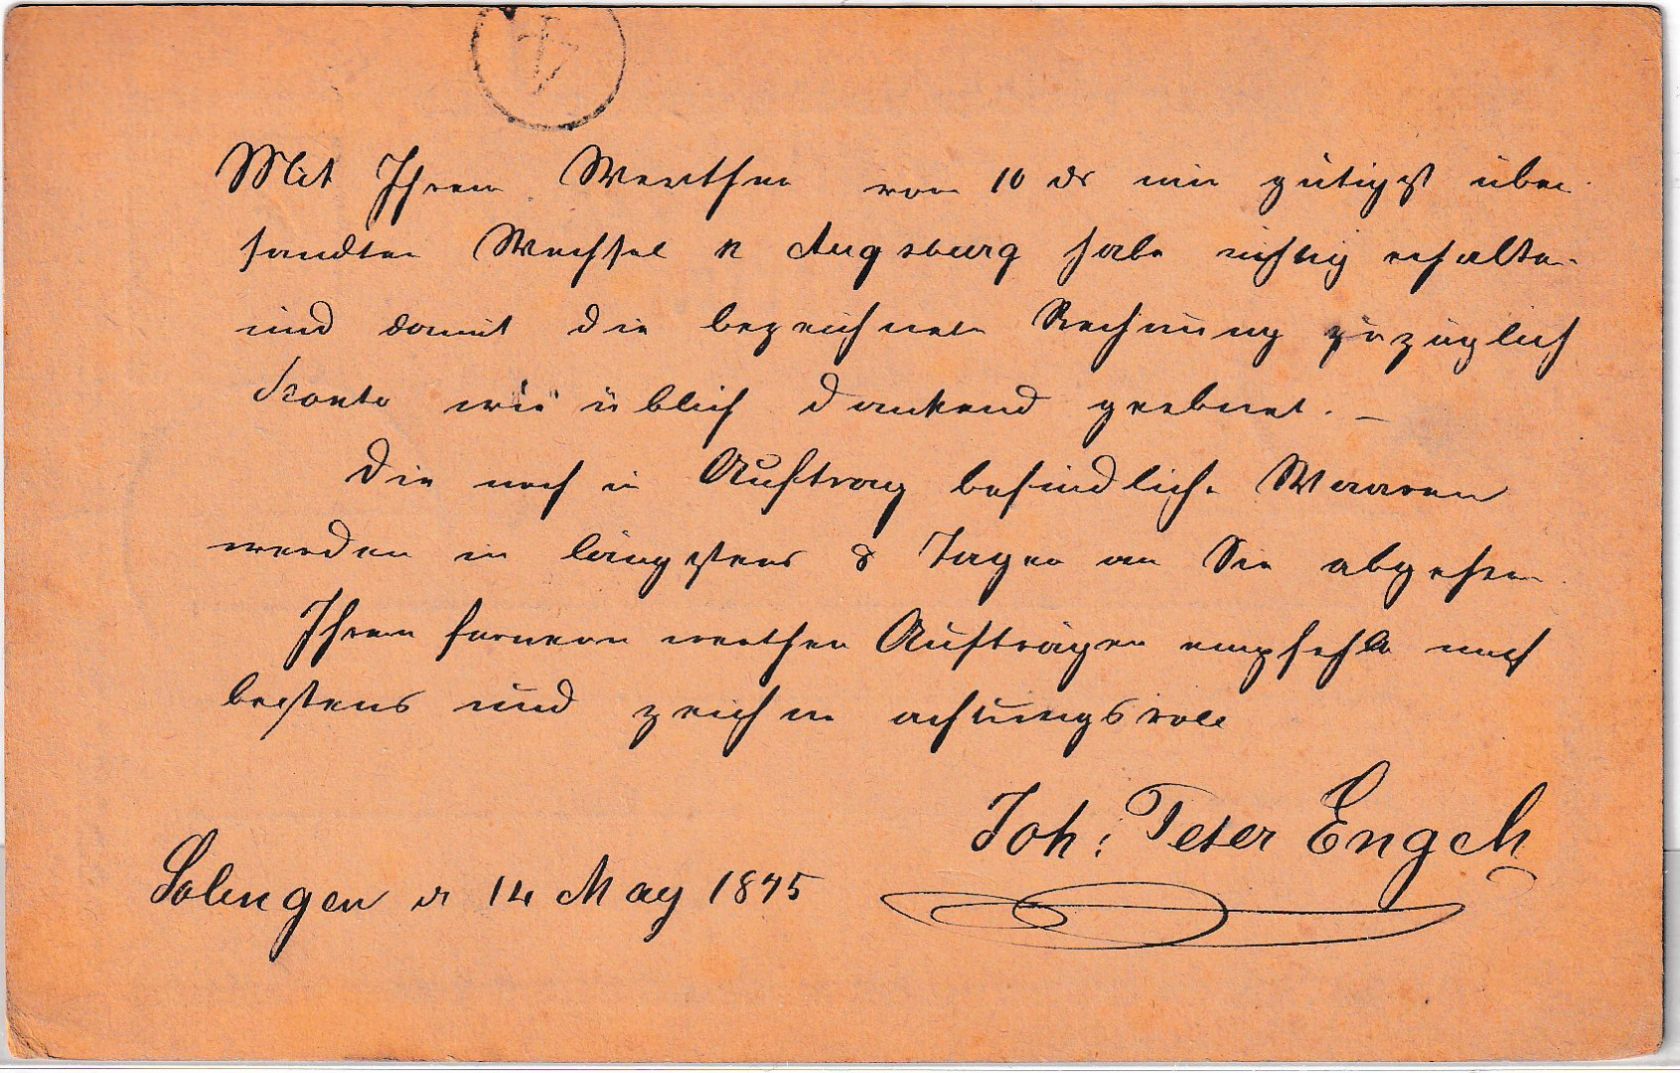 Mit Ihrem Werthen vom 10 ds mir gütigst über
sandten Wechsel p Augsburg habe richtig erhalten
und damit die bezeichnete Rechnung zuzüglich
Skonto wie üblich dankend geebnet. –
Die noch in Auftrag befindliche Waaren
werden in längstens 8 Tagen an Sie abgehen
Ihren fernern werthen Aufträgen empfehle mich
bestens und zeichne achtungsvoll
Joh: Peter Engels
Solingen d 14 May 1875